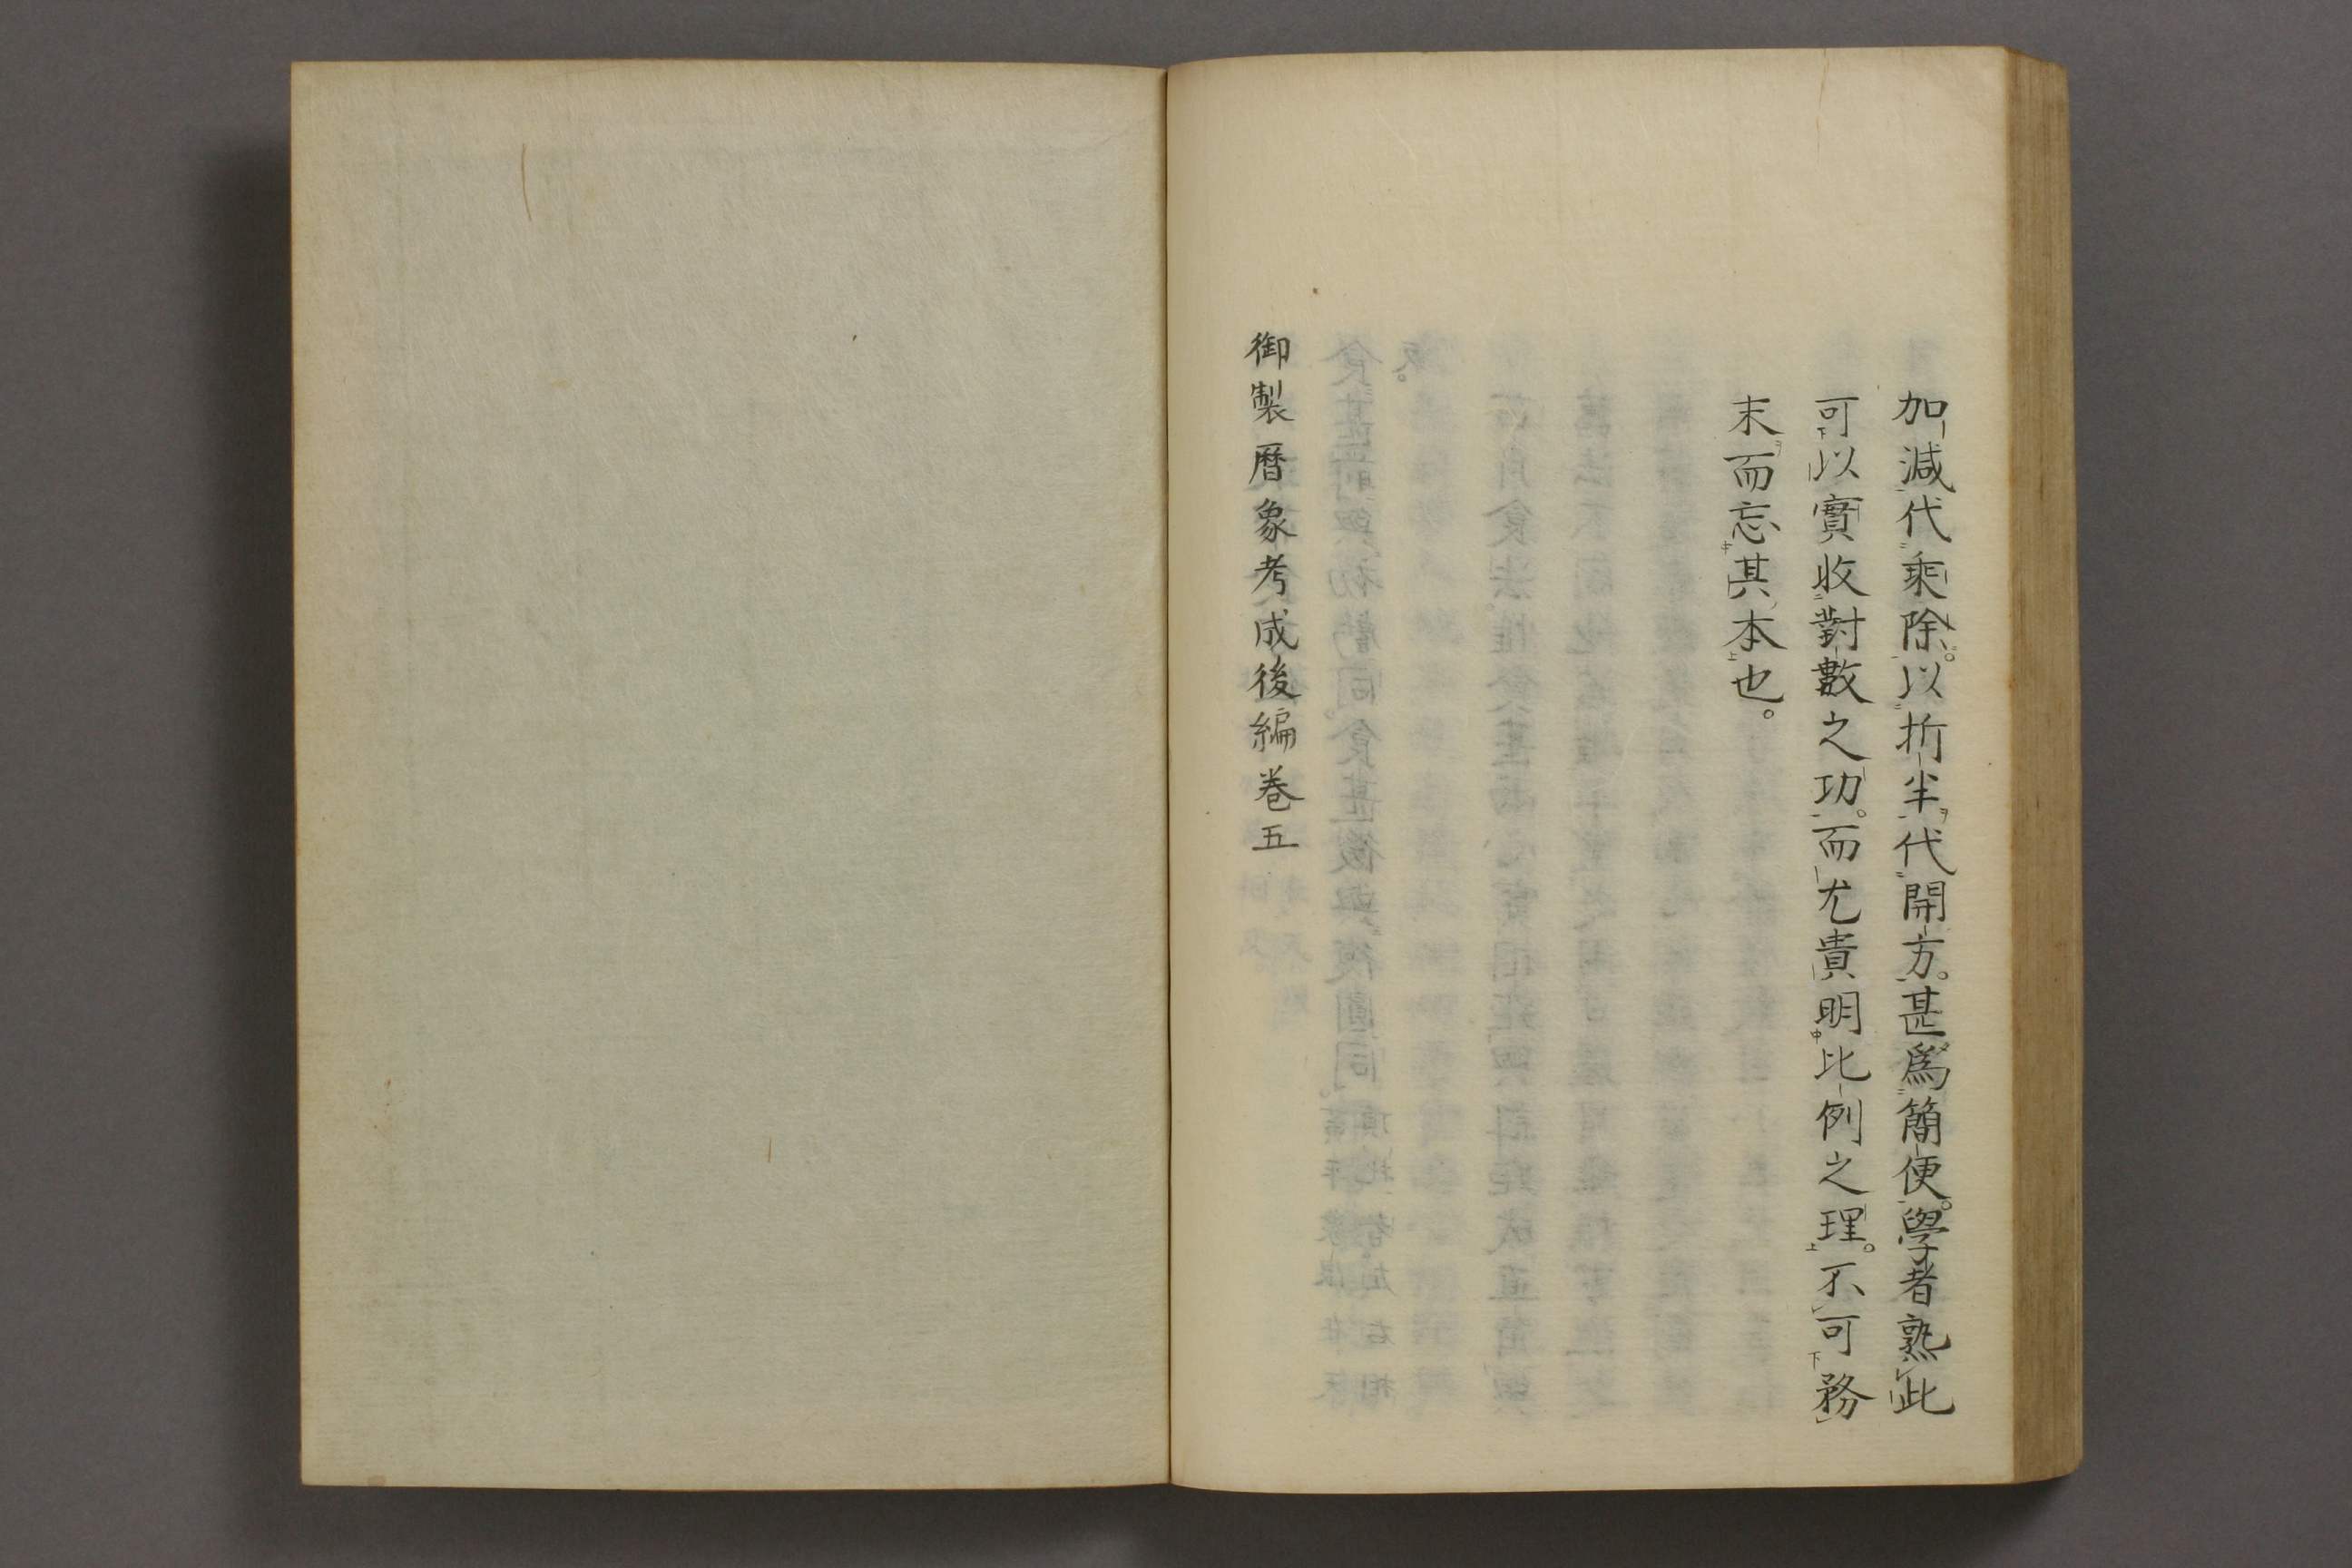 加減代乘除。以折半代開方。甚爲簡便。學者熟此
可以實收對數之功。而尤貴明比例之理。不可務
末而忘其本也。
御製曆象考成後編卷五